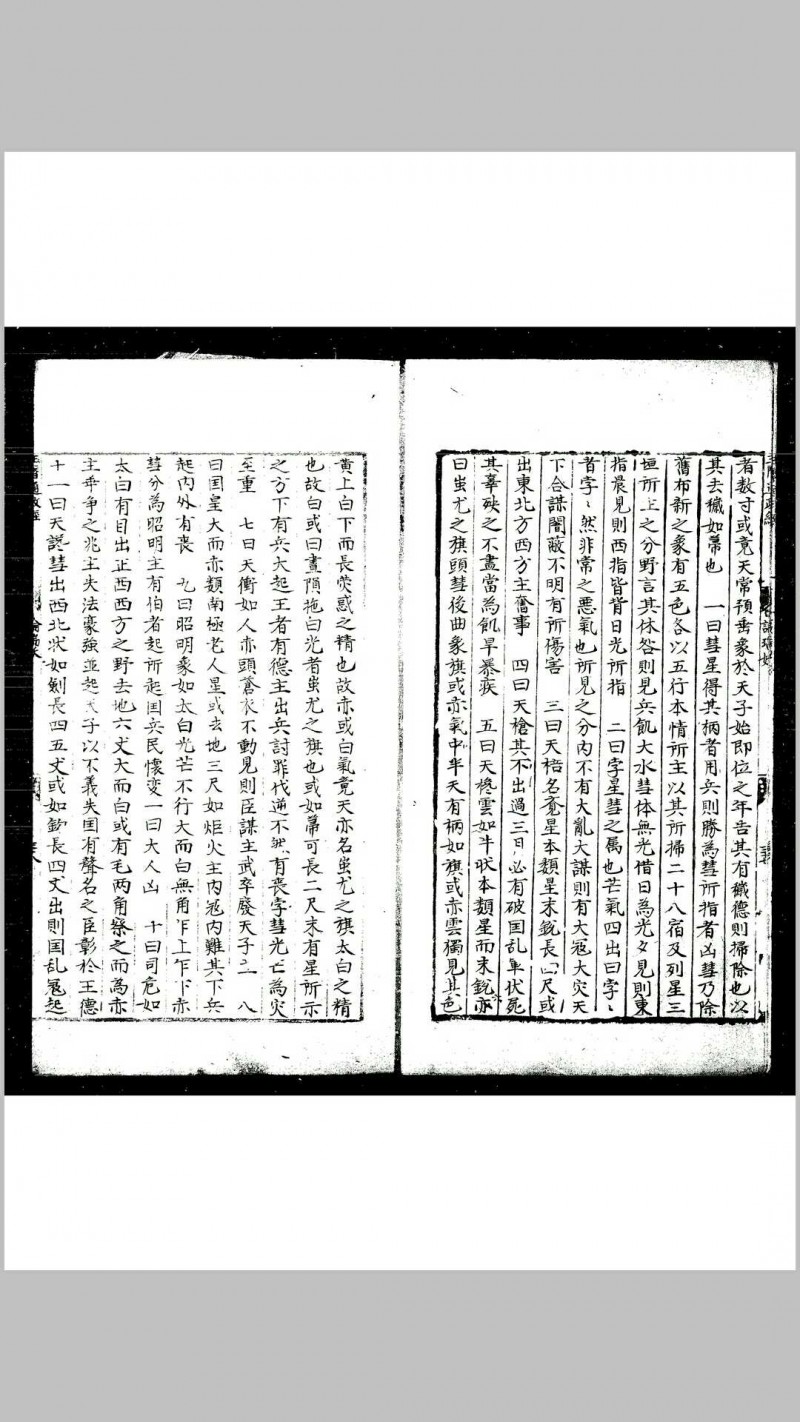 者数寸或竟天常預垂象於天子始即位之年告其有穢德則掃除也以
其去穢如篲也　一曰彗星得其柄者用兵則勝為彗所指者凶彗乃除
舊布新之象有五色各以五行本情所主以其所掃二十八宿及列星三
垣所主之分野言其休咎則見兵飢大水彗体無光借日為光夕見則東
指晨見則西指皆背日光所指　二曰孛星彗之属也芒氣四出曰孛〻
者孛〻然非常之悪氣也所見之分内不有大亂大謀則有大冦大灾天
下合謀闇蔽不明有所傷害　三曰天棓名覚星本類星末銳長四尺或
出東北方西方主奮事　四曰天槍其不出過三日必有破国乱军伏死
其辜殃之不盡當為飢旱暴疾　五曰天欃雲如牛状本類星而末銳亦
曰蚩尤之旗頭彗後曲象旗或赤氣中半天有柄如旗或赤雲獨見其色
黄上白下而長熒惑之精也故赤或白氣竟天亦名蚩尤之旗太白之精
也故白或曰晝隕拖白光者蚩尤之旗也或如篲可長二尺末有星所示
之方下有兵大起王者有德主出兵討罪代逆不然有喪孛彗光亡為灾
至重　七曰天衝如人赤頭蒼衣不動見則臣謀主武卒廢天子二　八
曰国皇大而赤類南極老人星或去地三尺如炬火主内冦内難其下兵
起内外有喪　九曰昭明象如太白光芒不行大而白無角乍上乍下赤
彗分為昭明主有伯者起所起国兵民懷变一曰大人凶　十曰司危如
太白有目出正西西方之野去地六丈大而白或有毛两角察之而為赤
主乖争之兆主失法豪強並起天子以不義失国有聲名之臣彰於王德
十一曰天讒彗出西北状如劍長四五丈或如鈎長四丈出則国乱冦起